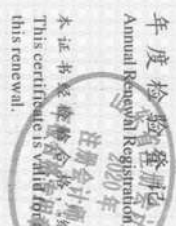 年度检验登记
Annual Renewal Registration
本证书经检验合格，
This certificate is valid for
this renewal.
2020年
注册会计师